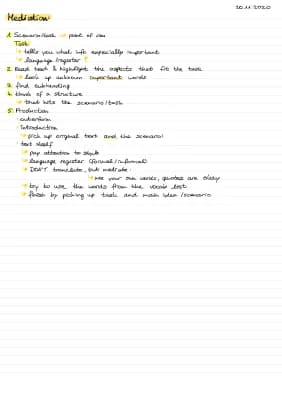 20.11.2020
Mediation
1. Scenario/task → point of view
Task
→ tells you what info especially important
→ language register !
2. Read text & highlight the aspects that fit the task
→ look up unknown important words
3. find subheading
4. think of a structure
→ that suits the scenario/task
5. Production
· outerform
· Introduction
→ pick up original text and the scenario!
· text itself
→ pay attention to style
→ language register (formal/informal)
→ DON'T translate, but mediate:
→ use your own words, quotes are okay
→ try to use the words from the vocab list
→ finish by picking up task and main idea/scenario